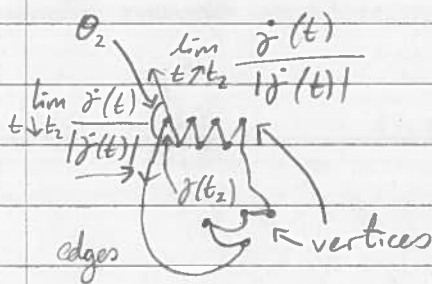 θ₂
lim t↗t₂ γ̇(t) / |γ̇(t)|
lim t↓t₂ γ̇(t) / |γ̇(t)|
γ(t₂)
edges
vertices